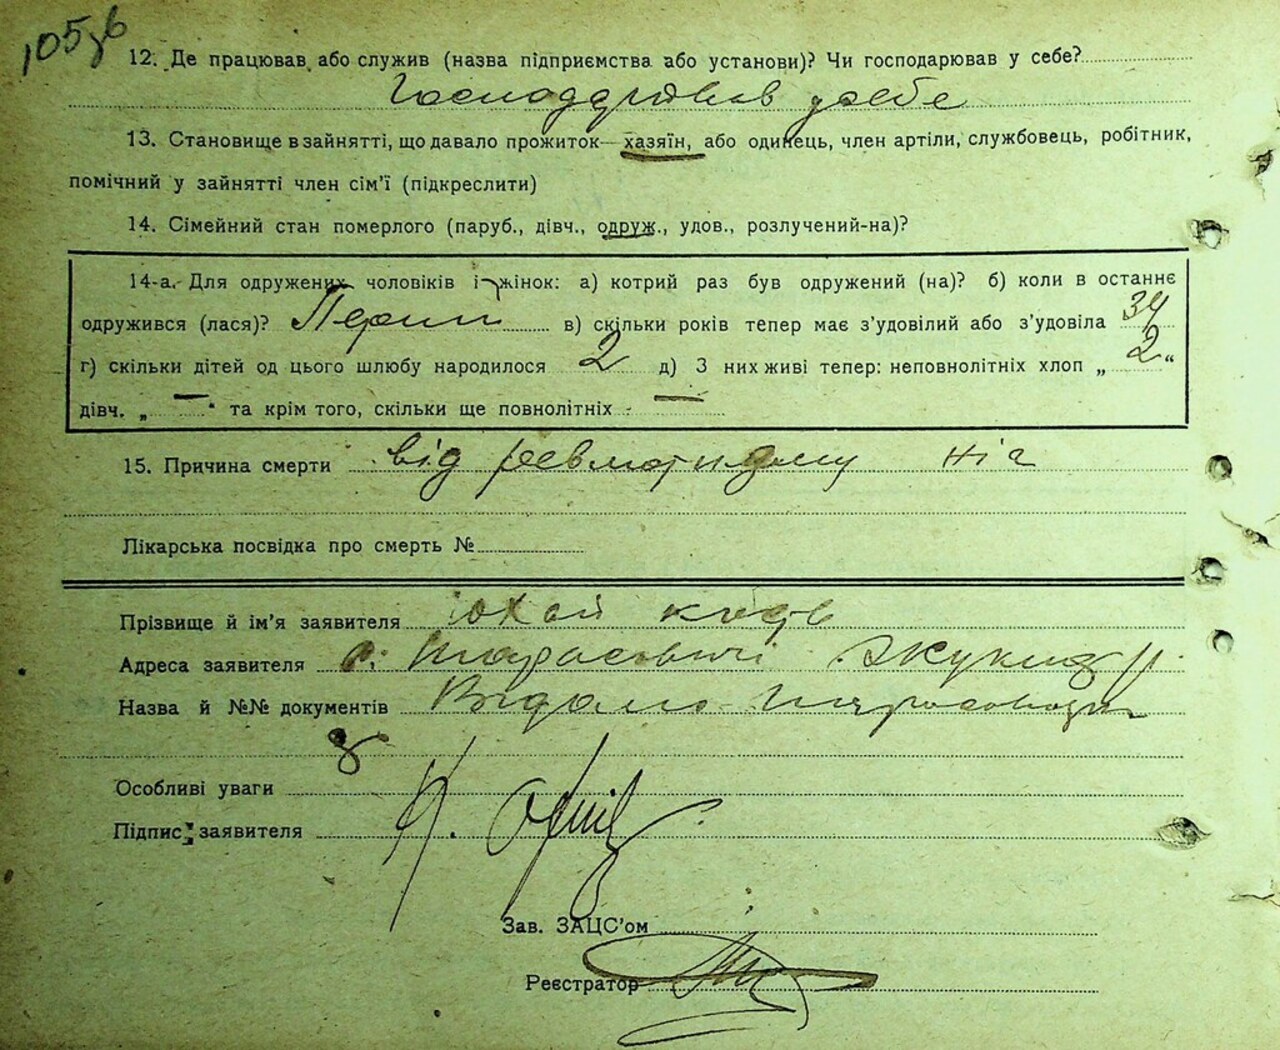 105зв
12. Де працював або служив (назва підприємства або установи)? Чи господарював у себе?
Господарював у себе
13. Становище в зайнятті, що давало прожиток— хазяїн, або одинець, член артіли, службовець, робітник,
помічний у зайнятті член сім'ї (підкреслити)
14. Сімейний стан померлого (паруб., дівч., одруж., удов., розлучений-на)?
14-а. Для одружених чоловіків і жінок: а) котрий раз був одружений (на)? б) коли в останнє
одружився (лася)? Перший в) скільки років тепер має з'удовілий або з'удовіла 34
г) скільки дітей од цього шлюбу народилося 2 д) З них живі тепер: неповнолітніх хлоп „ 2 “
дівч. „ — “ та крім того, скільки ще повнолітніх —
15. Причина смерти від ревматизму ніг
Лікарська посвідка про смерть №
Прізвище й ім'я заявителя Юхай
Адреса заявителя с. Тарасовичі
Назва й №№ документів Відомо
Особливі уваги
Підпис заявителя
Зав. ЗАЦС'ом
Реєстратор